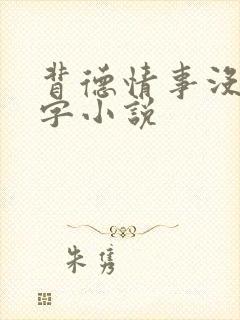 背德情事没
字小说
朱隽